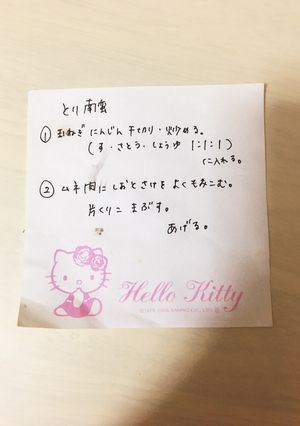 とり南蛮
① 玉ねぎ にんじん 千切り・炒める。
(す・さとう・しょうゆ 1:1:1)
に入れる。
② ムネ肉に しおとさけを よくもみこむ。
片くりこ まぶす。
あげる。
Hello Kitty